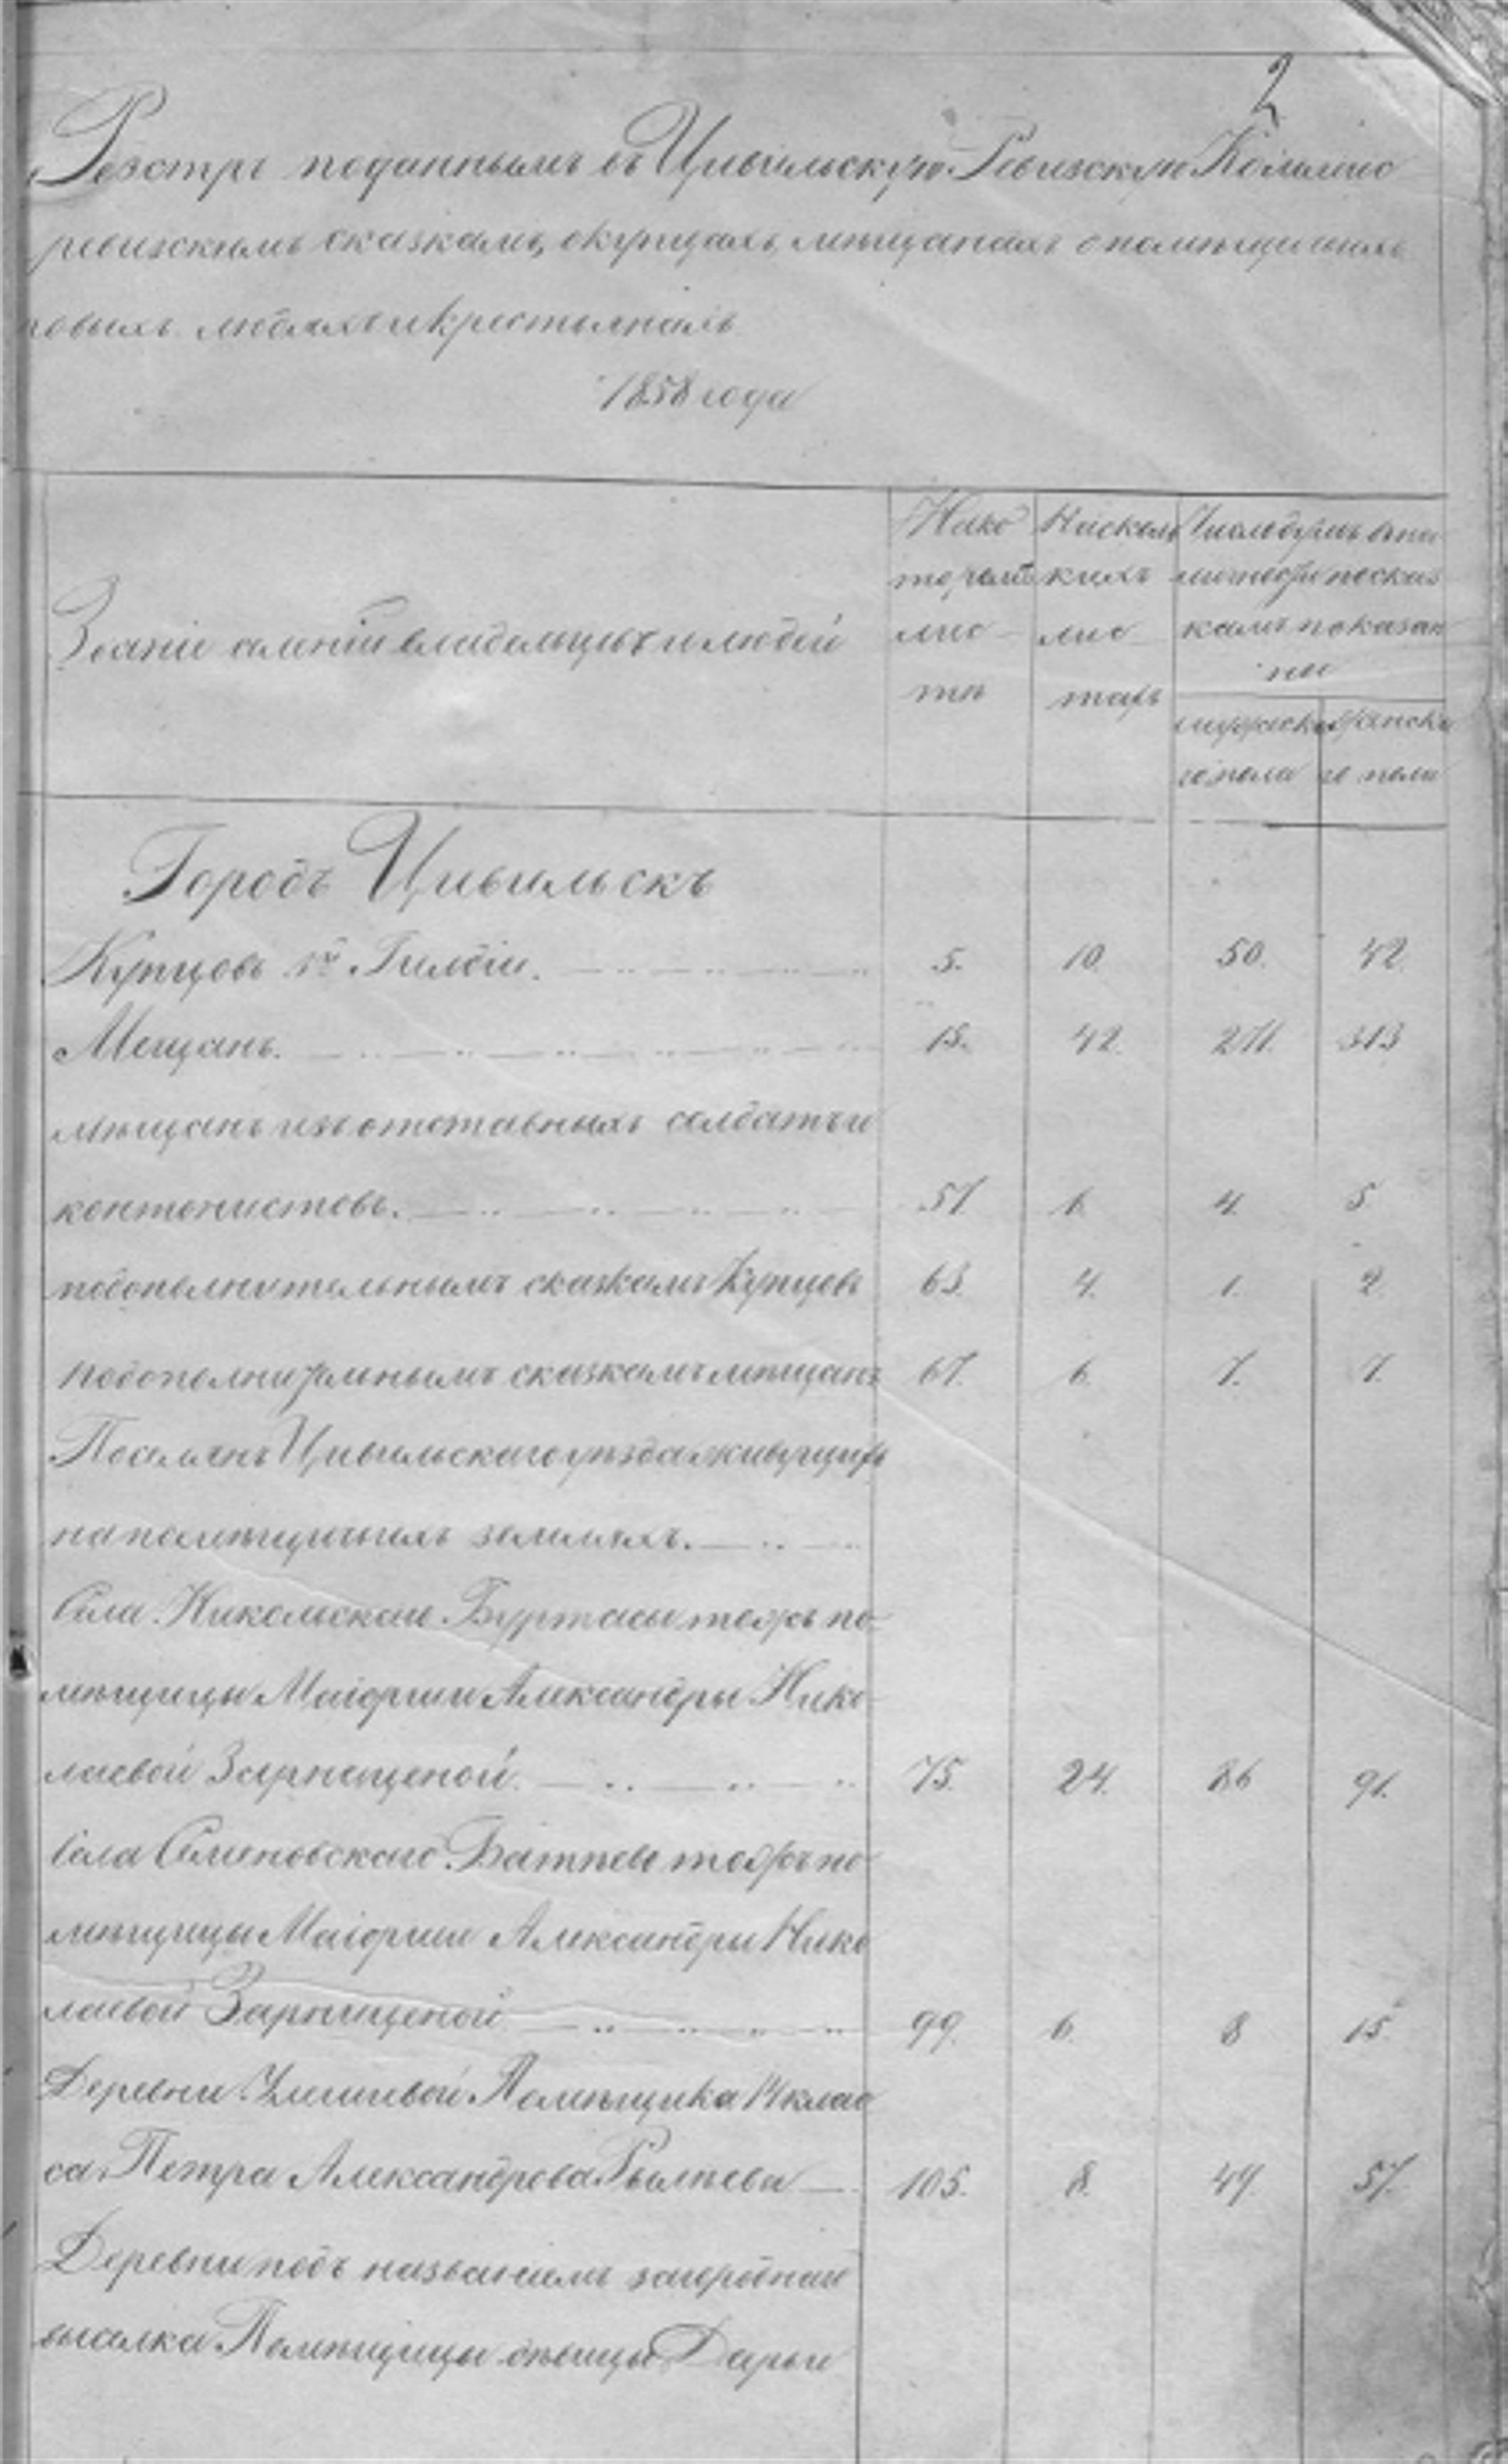 2
Реэстръ поданнымъ въ Цивильскую Ревизскую Коммис
ревизскимъ сказкамъ, окупцахъ, мѣщанахъ опомѣщичьихъ
ровыхъ людяхъ икрестьянахъ
1858 года
Званіе селеній владельцевъ и людей
Нако
торомъ
лис
тѣ
Насколь
кихъ
лис
тахъ
Число душъ вна
личности посказ
камъ показан
ны
мужеска
го пола
женска
го пола
Городъ Цивильскъ
Купцовъ 3й Гилдіи. 5. 10. 50. 42.
Мещанъ. 15. 42. 271. 313
мѣщанъ изъ отставныхъ солдатъ и
контонистовъ. 57. 6. 4. 5
подополнительнымъ сказкамъ Купцовъ 63. 4. 1. 2
подополнительнымъ сказкамъ мѣщанъ 67. 6. 7. 7.
Поселянъ Цивильскаго уѣзда живущихъ
на помѣщичьихъ земляхъ.
Села Никольскаго Буртасы тожъ по-
мѣщицы Маіорши Александры Нико-
лаевой Зарницыной. 75. 24. 86 91.
Села Семеновскаго Батѣево тожъ по-
мѣщицы Маіорши Александры Нико
лаевой Зарницыной 99. 6. 8 15.
Деревни Помѣщика 14 клас
са Петра Александрова Рылѣева 105. 8. 49. 57.
Деревни подъ названіемъ загороднаго
выселка Помѣщицы девицы Дарьи